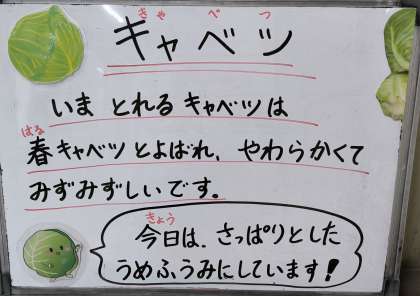 きゃべつ
キャベツ
いま とれる キャベツは
はる
春キャベツとよばれ、やわらかくて
みずみずしいです。
きょう
今日は、さっぱりとした
うめふうみにしています!